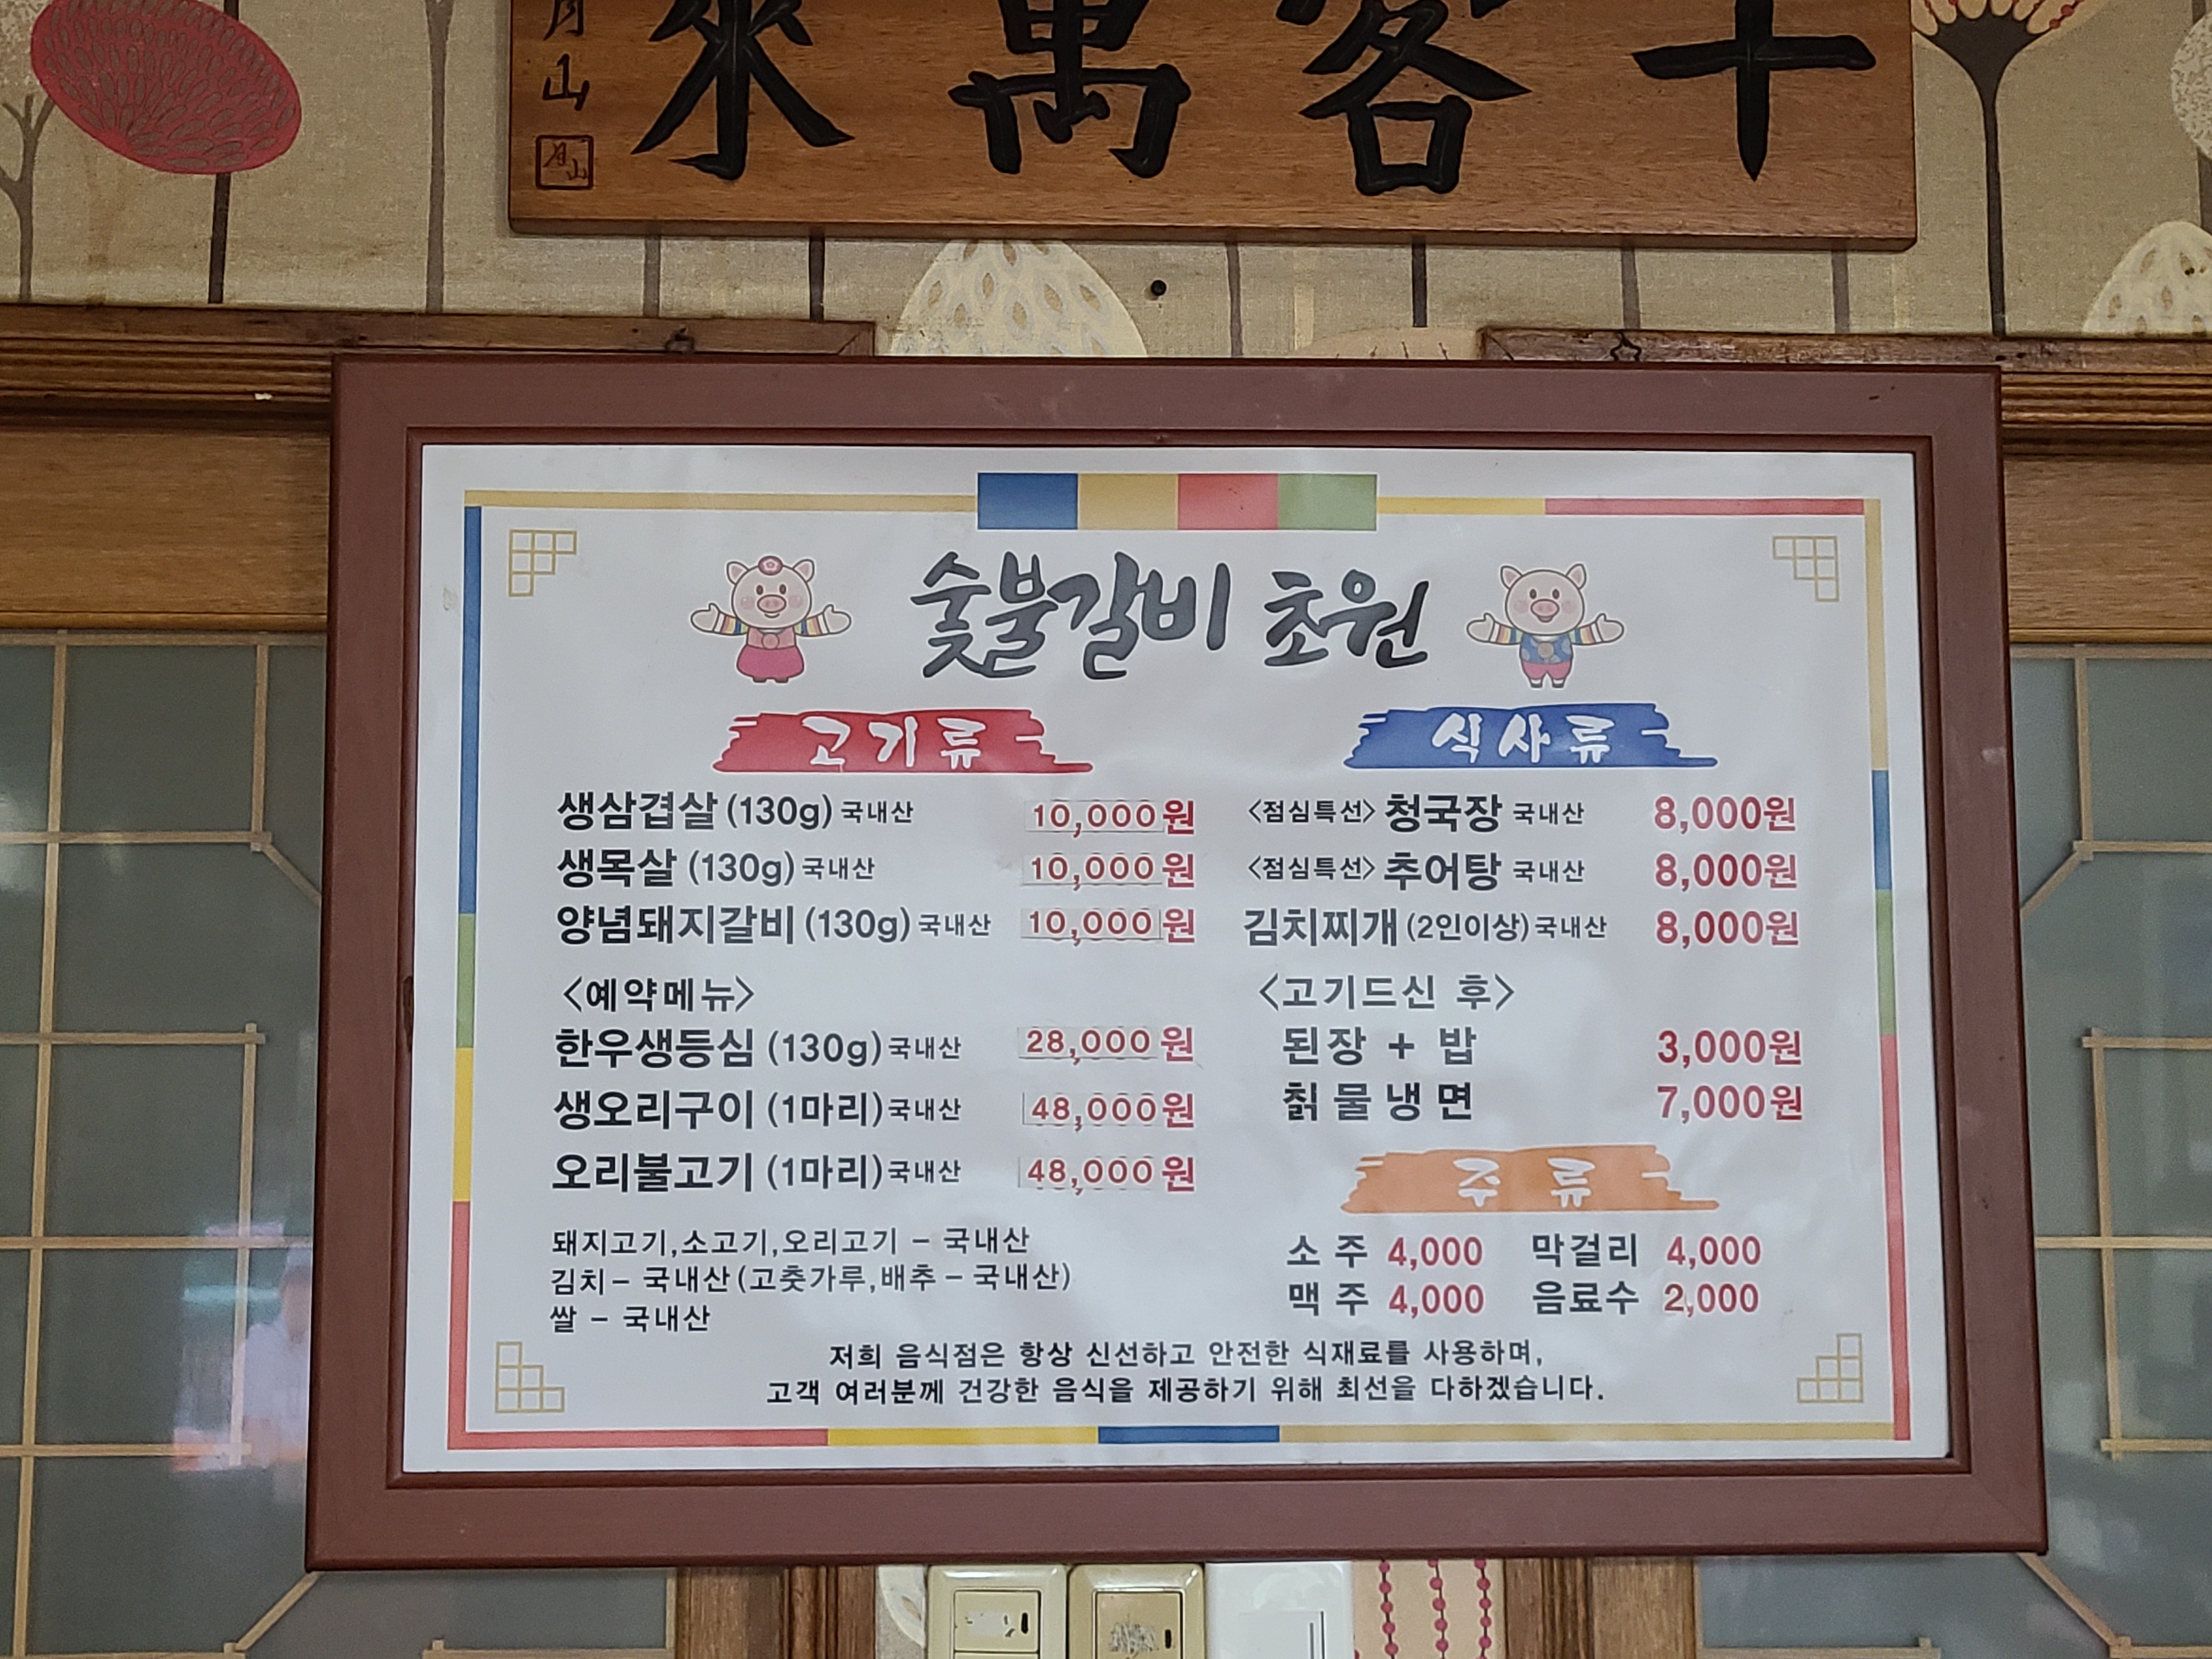 千客萬來
月山
月山
숯불갈비 초원
고기류
생삼겹살 (130g) 국내산 10,000원
생목살 (130g) 국내산 10,000원
양념돼지갈비 (130g) 국내산 10,000원
<예약메뉴>
한우생등심 (130g) 국내산 28,000원
생오리구이 (1마리) 국내산 48,000원
오리불고기 (1마리) 국내산 48,000원
돼지고기,소고기,오리고기 - 국내산
김치 - 국내산 (고춧가루,배추 - 국내산)
쌀 - 국내산
식사류
<점심특선> 청국장 국내산 8,000원
<점심특선> 추어탕 국내산 8,000원
김치찌개 (2인이상) 국내산 8,000원
<고기드신 후>
된장 + 밥 3,000원
칡물냉면 7,000원
주류
소주 4,000 막걸리 4,000
맥주 4,000 음료수 2,000
저희 음식점은 항상 신선하고 안전한 식재료를 사용하며,
고객 여러분께 건강한 음식을 제공하기 위해 최선을 다하겠습니다.